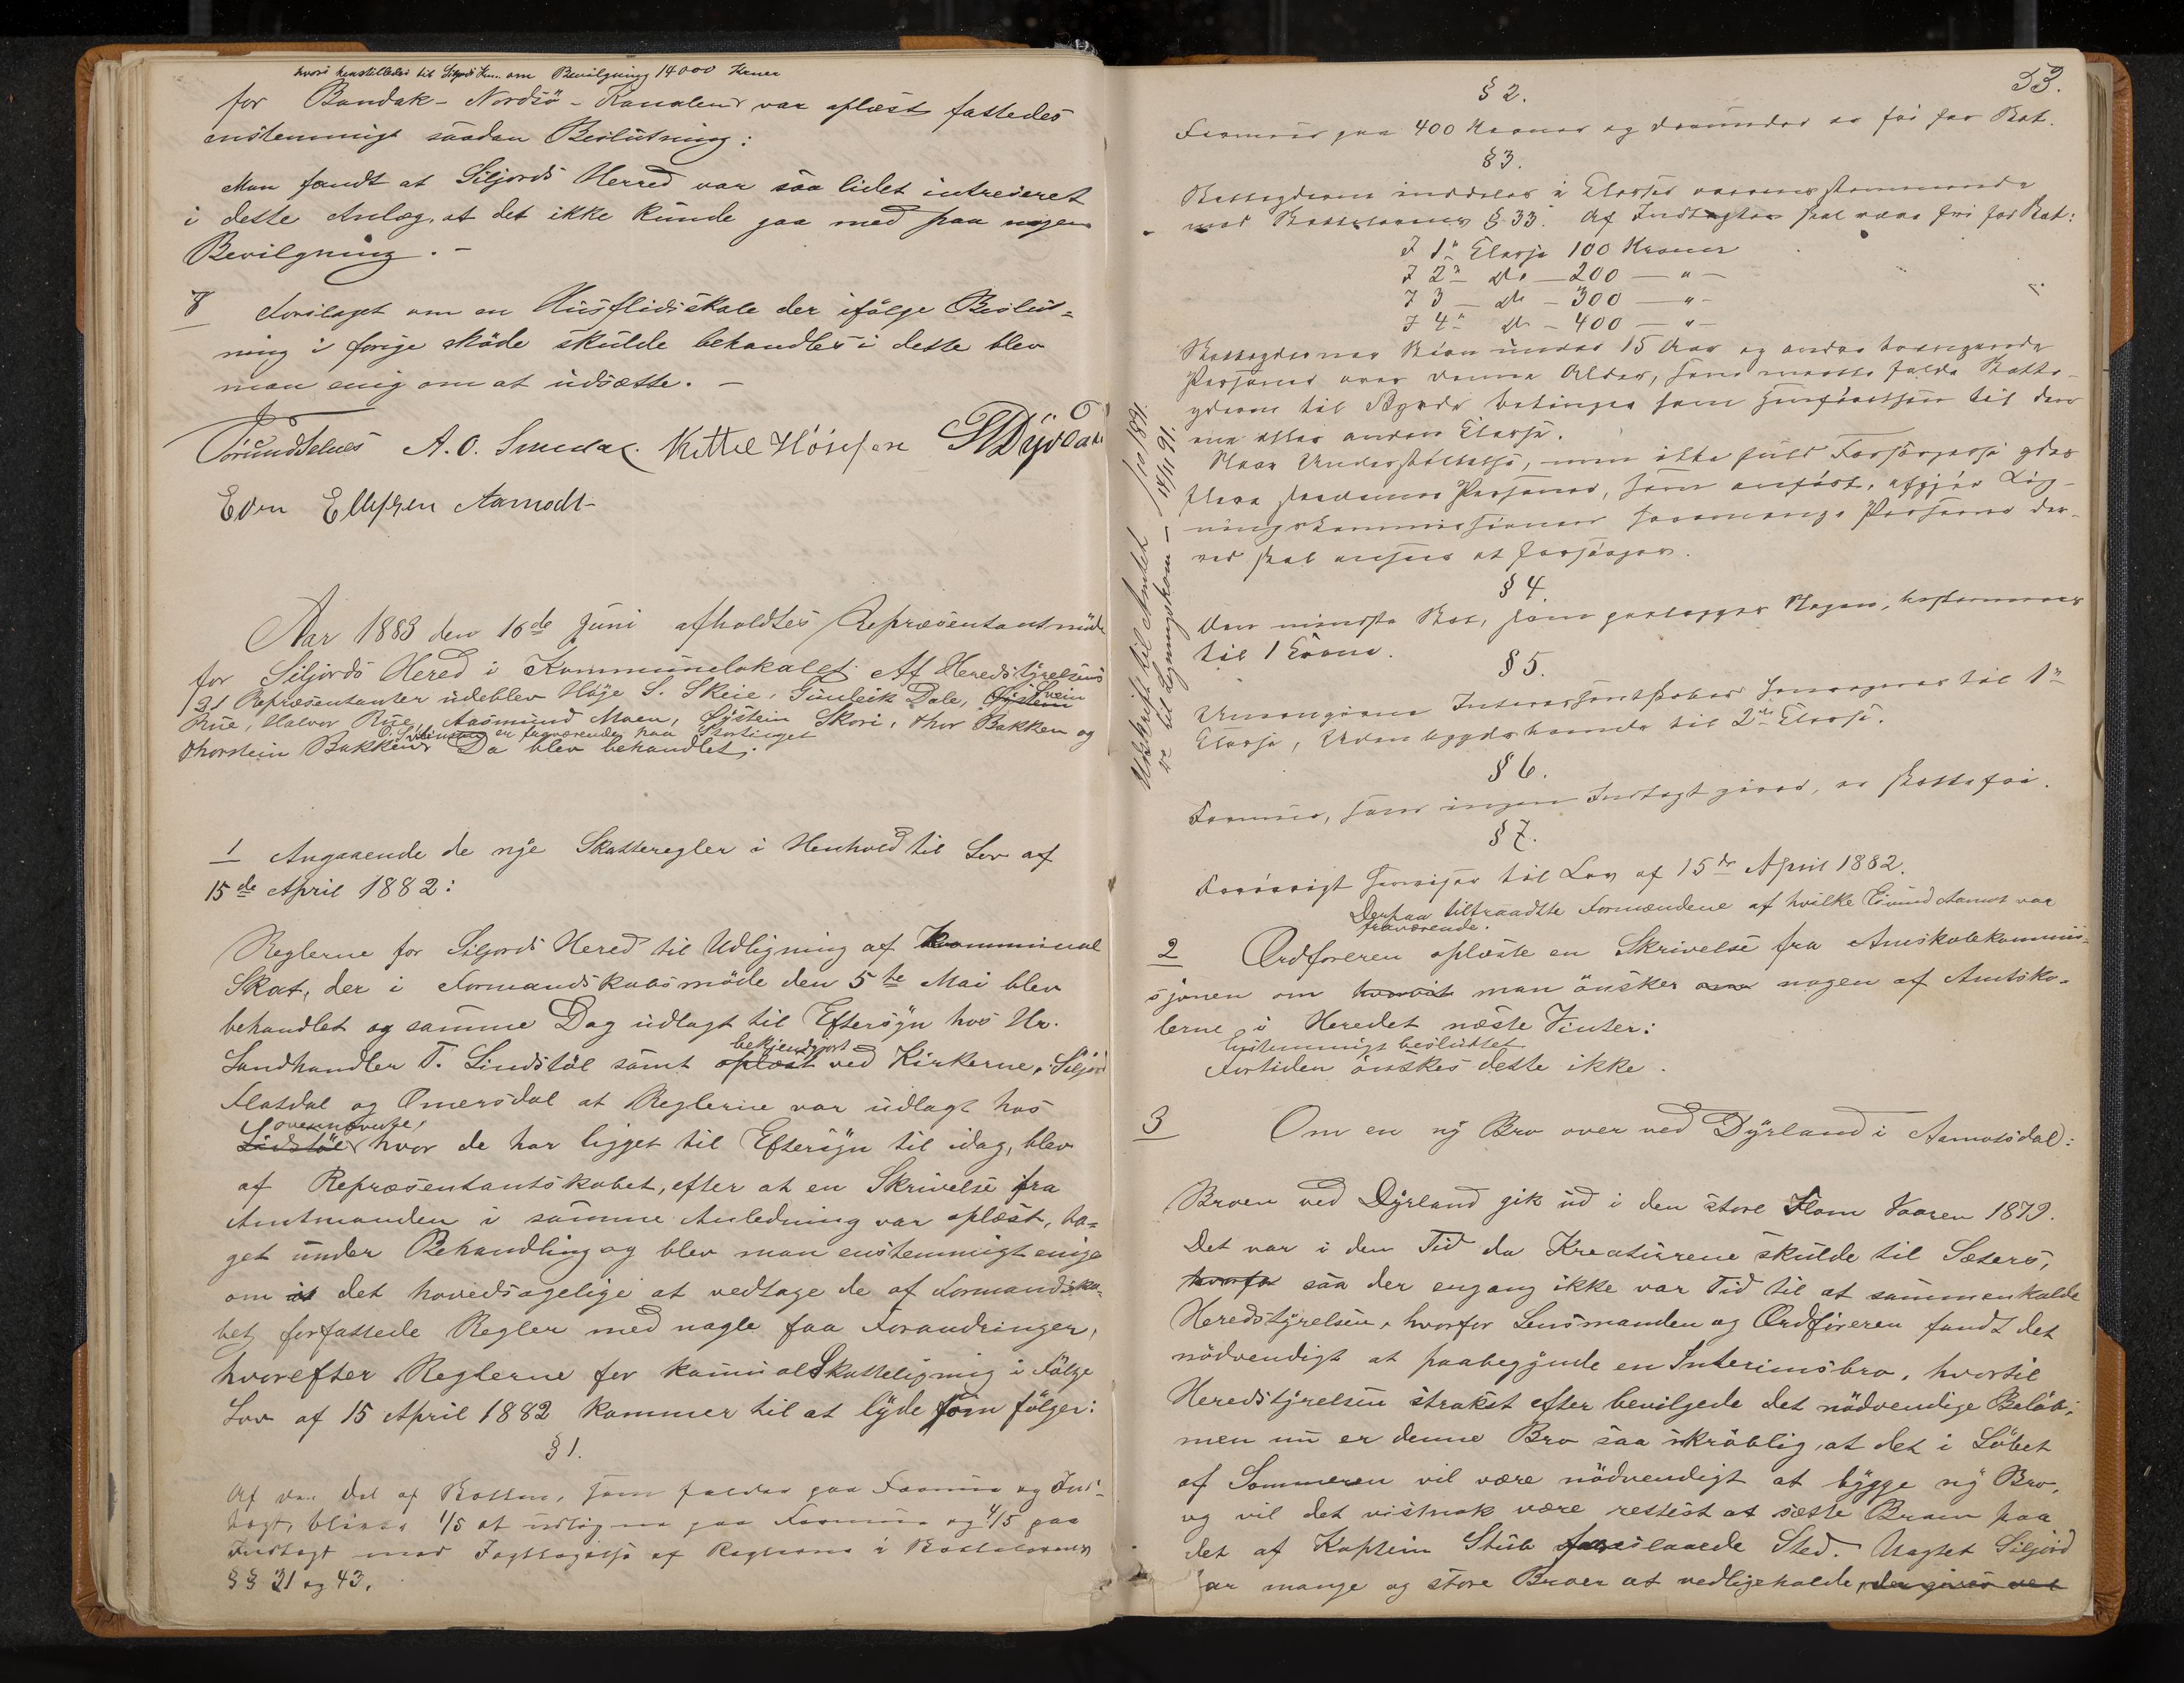 hvori henstilledes til Siljords Kom. om Bevilgning 14000 Kroner
for Bandak-Nordsö-Kanalen var oplæst fattedes
enstemmigt saadan Beslutning:
Man fandt at Siljords Herred var saa lidet intreseret
i dette Anlæg, at det ikke kunde gaa med paa nogen
Bevilgning. -
8 Forslaget om en Husflidsskole der ifölge Beslut=
ning i forige Möde skulde behandles i dette blev
man enig om at udsætte. -
A. O. Kittel
Even Ellefsen Aamodt
Aar 1883 den 16de Juni afholdtes Repræsentantmöde
for Siljords Hered i Kommunelokalet. Af Heredstyrelsens
21 Repræsentanter udeblev Höje S. Skeie, Gunleik Dale, Öistein Svein
Rue, Halvor Rue, Aasmund Moen, Öystein Skori, Thor Bakken og
er fraværende paa Stortinget
Thorstein Bakken. Da blev behandlet:
1 Angaaende de nÿe Skatteregler i Henhold til Lov af
15de April 1882:
Reglerne for Siljords Hered til Udligning af Kommunal
Skat, der i Formandskabsmöde den 5te Mai blev
behandlet og samme Dag udlagt til Eftersÿn hos Hr.
bekjendtgjort
Landhandler T. Lindstöl samt oplæst ved Kirkerne, Siljord
Flatdal og Omersdal at Reglerne var udlagt hos
ovennævnte,
Lindstöl hvor de har ligget til Eftersÿn til idag, blev
af Repræsentantskabet, efter at en Skrivelse fra
Amtmanden i samme Anledning var oplæst, ta=
get under Behandling og blev man enstemmigt enige
om at det hovedsagelige at vedtage de af Formandska=
bet forfattede Regler med nogle faa Forandringer,
hvorefter Reglerne for kommualSkatteligning i Fölge
Lov af 15 April 1882 kommer til at lÿde som fölger:
§ 1.
Af den Del af Skatten, som falder paa Formue og Ind-
tægt, bliver 1/5 at udligne paa Formue og 4/5 paa
Indtægt med Iagttagelse af Reglerne i Skattelovens
§§ 21 og 43.
53.
§ 2.
Formuer paa 400 Kroner og derunder er fri for Skat.
§ 3.
Skatteyderne inddeles i Classer overensstemmende
med Skattelovens § 33. Af Indtægten skal være fri for Skat:
I 1ste Classe 100 Kroner
I 2den do - 200 - " -
I 3 - do - 300 - " -
I 4de do - 400 - " -
Skatteydernes Börn under 15 Aar og andre trængende
Personer over denne Alder, som maatte falde Skatte-
yderne til Byrde betinger som Henförelsen til den
ene eller anden Classe.
Naar Understöttelse, men ikke fuld Forsörgelse ydes
flere saadanne Personer, som anfört, afgjör Lig-
ningskommissionen hvormange Personer der-
ved skal ansees at forsörges.
§ 4.
Den mindste Skat, som paalægges Nogen, bestemmes
til 1 Krone.
§ 5.
Umyndige henregnes til 1ste
Classe, Udenbygdsboende til 2den Classe.
§ 6.
Formue, som ingen Indtægt giver, er skattefri.
§ 7.
Forövrigt henvises til Lov af 15de April 1882.
Derpaa tiltraadtte Formændene af hvilke Eivind Aamot var
fraværende.
2 Ordföreren oplæste en Skrivelse fra Amtskolekommis=
sjonen om hvorvit man önsker om nogen af Amtsko=
lerne i Heredet næste Vinter:
Enstemmigt besluttet
Fortiden önskes dette ikke.
3 Om en nÿ Bro over ved Dÿrland i Aamotsdal:
Broen ved Dÿrland gik ud i den store Flom Vaaren 1879.
Det var i den Tid da Kreaturene skulde til Sæters,
hvorfor saa der engang ikke var Tid til at sammenkalde
Heredstÿrelsen, hvorfor Lensmanden og Ordföreren fandt det
nödvendigt at paabegÿnde en Interimsbro, hvortil
Heredstÿrelsen strakst efter bevilgede det nödvendige Belöb;
men nu er denne Bro saa skröblig, at det i Löbet
af Sommeren vil være nödvendigt at bÿgge nÿ Bro,
og vil det vistnok være rettest at sætte Broen paa
det af Kaptein Stub foreslaaede Sted. Uagtet Siljord
har mange og store Broer at vedligeholde,
Udskrift til Amtet 1891.
do til Ligningskom - 14/11 91.